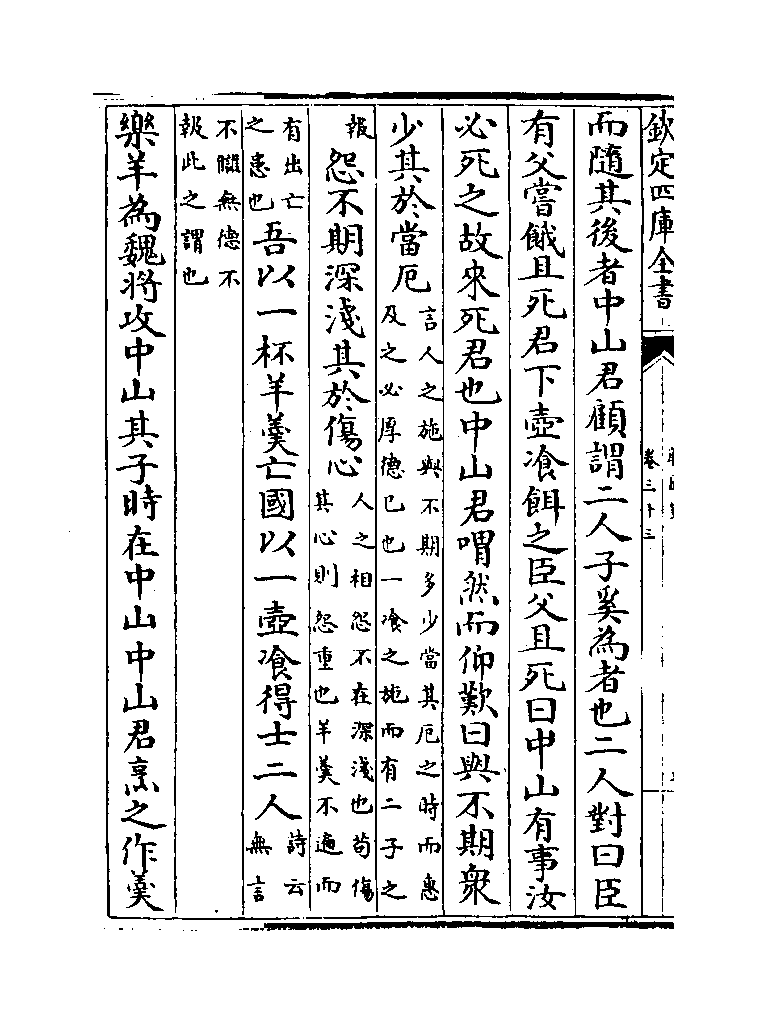 欽定四庫全書
卷三十三
而隨其後者中山君顧謂二人子奚為者也二人對曰臣
有父嘗餓且死君下壺飡餌之臣父且死曰中山有事汝
必死之故來死君也中山君喟然而仰歎曰與不期衆
少其於當厄言人之施與不期多少當其厄之時而惠
及之必厚德已也一飡之施而有二子之
報怨不期深淺其於傷心人之相怨不在深淺也苟傷
其心則怨重也羊羮不遍而
有出亡
之患也吾以一杯羊羮亡國以一壺飡得士二人詩云
無言
不讎無德不
報此之謂也
樂羊為魏將攻中山其子時在中山中山君烹之作羮